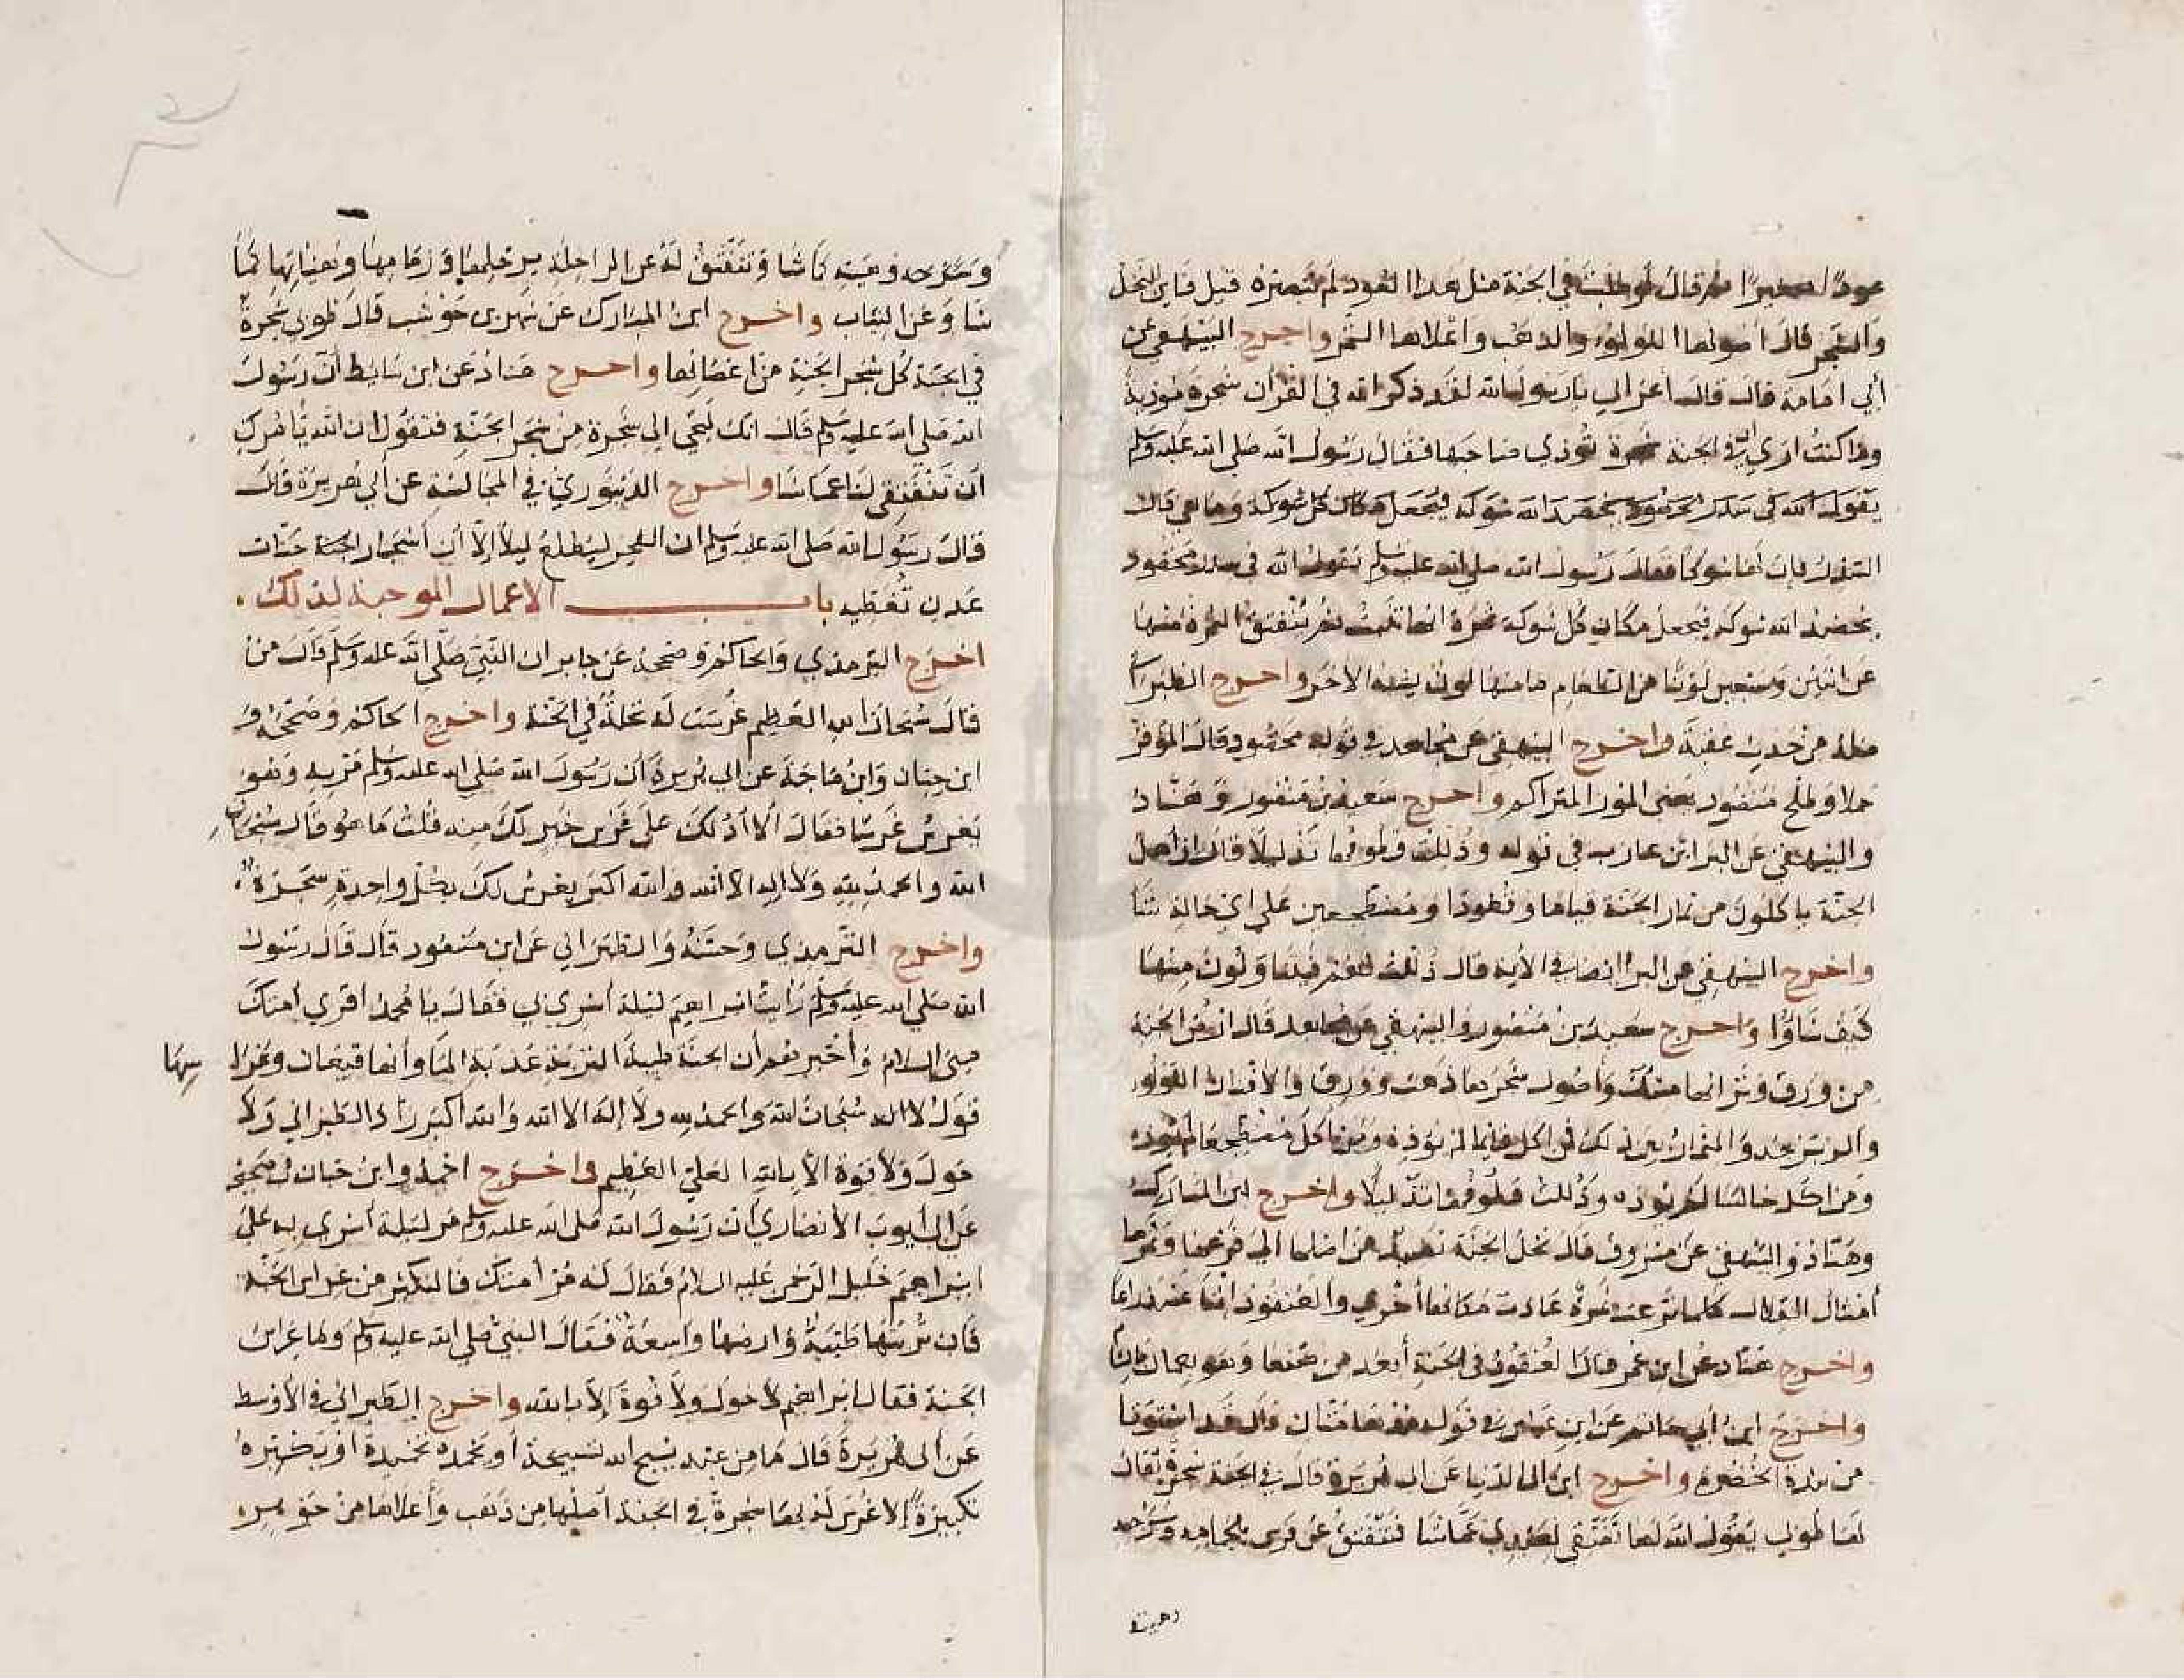 عودا صغيرا ثم قال لو طلبت في الجنة مثل هذا العود لم تبصره قيل فاين النخل
والشجر قال اصولها اللولوء والدهب واعلاها الثمر واخرج البيهقي عن
أبي امامة قال قال أعرابي يارسول الله لقد ذكر الله في القرآن شجرة موذية
وما كنت اري ان في الجنة شجرة توذي صاحبها فقال رسول الله صلى الله عليه وسلم
يقول الله في سدر مخضود يخضد الله شوكه فيجعل مكان كل شوكة وما هي قال
السدر فان لها شوكا فقال رسول الله صلى الله عليه وسلم يقول الله في سدر مخضود
يخضد الله شوكه فيجعل مكان كل شوكة ثمرة انها تنبت ثمر تنفتق الثمرة منها
عن اثنين وسبعين لونا من الطعام ما منها لون يشبه الاخر واخرج الطبراني
مثله من حديث عقبة واخرج البيهقي عن مجاهد في قوله مخضود قال الموقر
حملا وطلح منضود يعني الموز المتراكم واخرج سعيد بن منصور وهناد
والبيهقي عن البرا ابن عازب في قوله وذللت قطوفها تذليلا قال ان اهل
الجنة ياكلون من ثمار الجنة قياما وقعودا ومضطجعين علي اي حالة شا
واخرج البيهقي عن البرا ايضا في الأية قال ذللت لهم فيتناولون منها
كيف شاوا واخرج سعيد بن منصور والبيهقي عن مجاهد قال ارض الجنة
من ورق وترابها مسك وأصول شجرها ذهب وورق والافنان اللولو
والزبرجد والثمار بين ذلك فمن اكل قايما لم يوذه ومن اكل مضطجعا لم يوذه
ومن اكل جالسا لم يوذه وذللت قطوفها تذليلا واخرج ابن المبارك
وهناد والبيهقي عن مسروق قال نخل الجنة نضيد من اصلها الي فرعها وثمرها
أمثال القلال كلما نزعت ثمرة عادت مكانها أخري والعنقود اثنا عشر ذراعا
واخرج هناد عن ابن عمر قال العنقود في الجنة أبعد من صنعا وهو بعمان
واخرج ابن أبي حاتم عن ابن عباس في قوله مدهامتان قال قد اسودتا
من شدة الخضرة واخرج ابن ابي الدنيا عن ابي هريرة قال في الجنة شجرة يقال
لها طوبي يقول الله لها تفتقي لعبدي عما شا فتتفتق عن فرس بلجامه وسرجه
وهيئته
وسرجه وهيئته كما شا وتتفتق له عن الراحلة برحلها وزمامها وهيئاتها كما
شا وعن الثياب واخرج ابن المبارك عن شهر بن حوشب قال طوبي شجرة
في الجنة كل شجر الجنة من اغصانها واخرج هناد عن ابن سابط أن رسول
الله صلى الله عليه وسلم قال انك لتجي الي شجرة من شجر الجنة فتقول ان الله يأمرك
ان تتفتقي لنا عما شا واخرج الدينوري في المجالسة عن أبي هريرة قال
قال رسول الله صلى الله عليه وسلم ان الفجر ليطلع ليلا إلا أن أشجار الجنة جنات
عدن تغطيه باب الاعمال الموجبة لذلك
اخرج الترمذي والحاكم وصححه عن جابر ان النبي صلى الله عليه وسلم قال من
قال سبحان الله العظيم غرست له نخلة في الجنة واخرج الحاكم وصححه و
ابن حبان وابن ماجة عن ابي هريرة أن رسول الله صلى الله عليه وسلم مر به وهو
يغرس غرسا فقال ألا أدلك على غرس خير لك منه قلت ما هو قال سبحان
الله والحمد لله ولا اله الا الله والله اكبر يغرس لك بكل واحدة شجرة
واخرج الترمذي وحسنه والطبراني عن ابن مسعود قال قال رسول
الله صلى الله عليه وسلم رأيت ابراهيم ليلة أسري بي فقال يا محمد اقري أمتك
مني السلام وأخبرهم أن الجنة طيبة التربة عذبة الما وأنها قيعان وغرا سها
قول لا اله سبحان الله والحمد لله ولا إله الا الله والله أكبر زاد الطبراني ولا
حول ولا قوة الا بالله العلي العظيم واخرج احمد وابن حبان في صحيحه
عن ابي أيوب الأنصاري أن رسول الله صلى الله عليه وسلم مر ليلة أسري به على
ابراهيم خليل الرحمن عليه السلام فقال له مر أمتك فاليكثر من غراس الجنة
فان تربتها طيبة وارضها واسعة فقال النبي صلى الله عليه وسلم وما غراس
الجنة فقال ابراهيم لا حول ولا قوة إلا بالله واخرج الطبراني في الأوسط
عن أبي هريرة قال ما من عبد يسبح الله تسبيحة أو يحمده تحميدة أو يكبره
تكبيرة إلا غرس له بها شجرة في الجنة أصلها من ذهب وأعلاها من جوهر